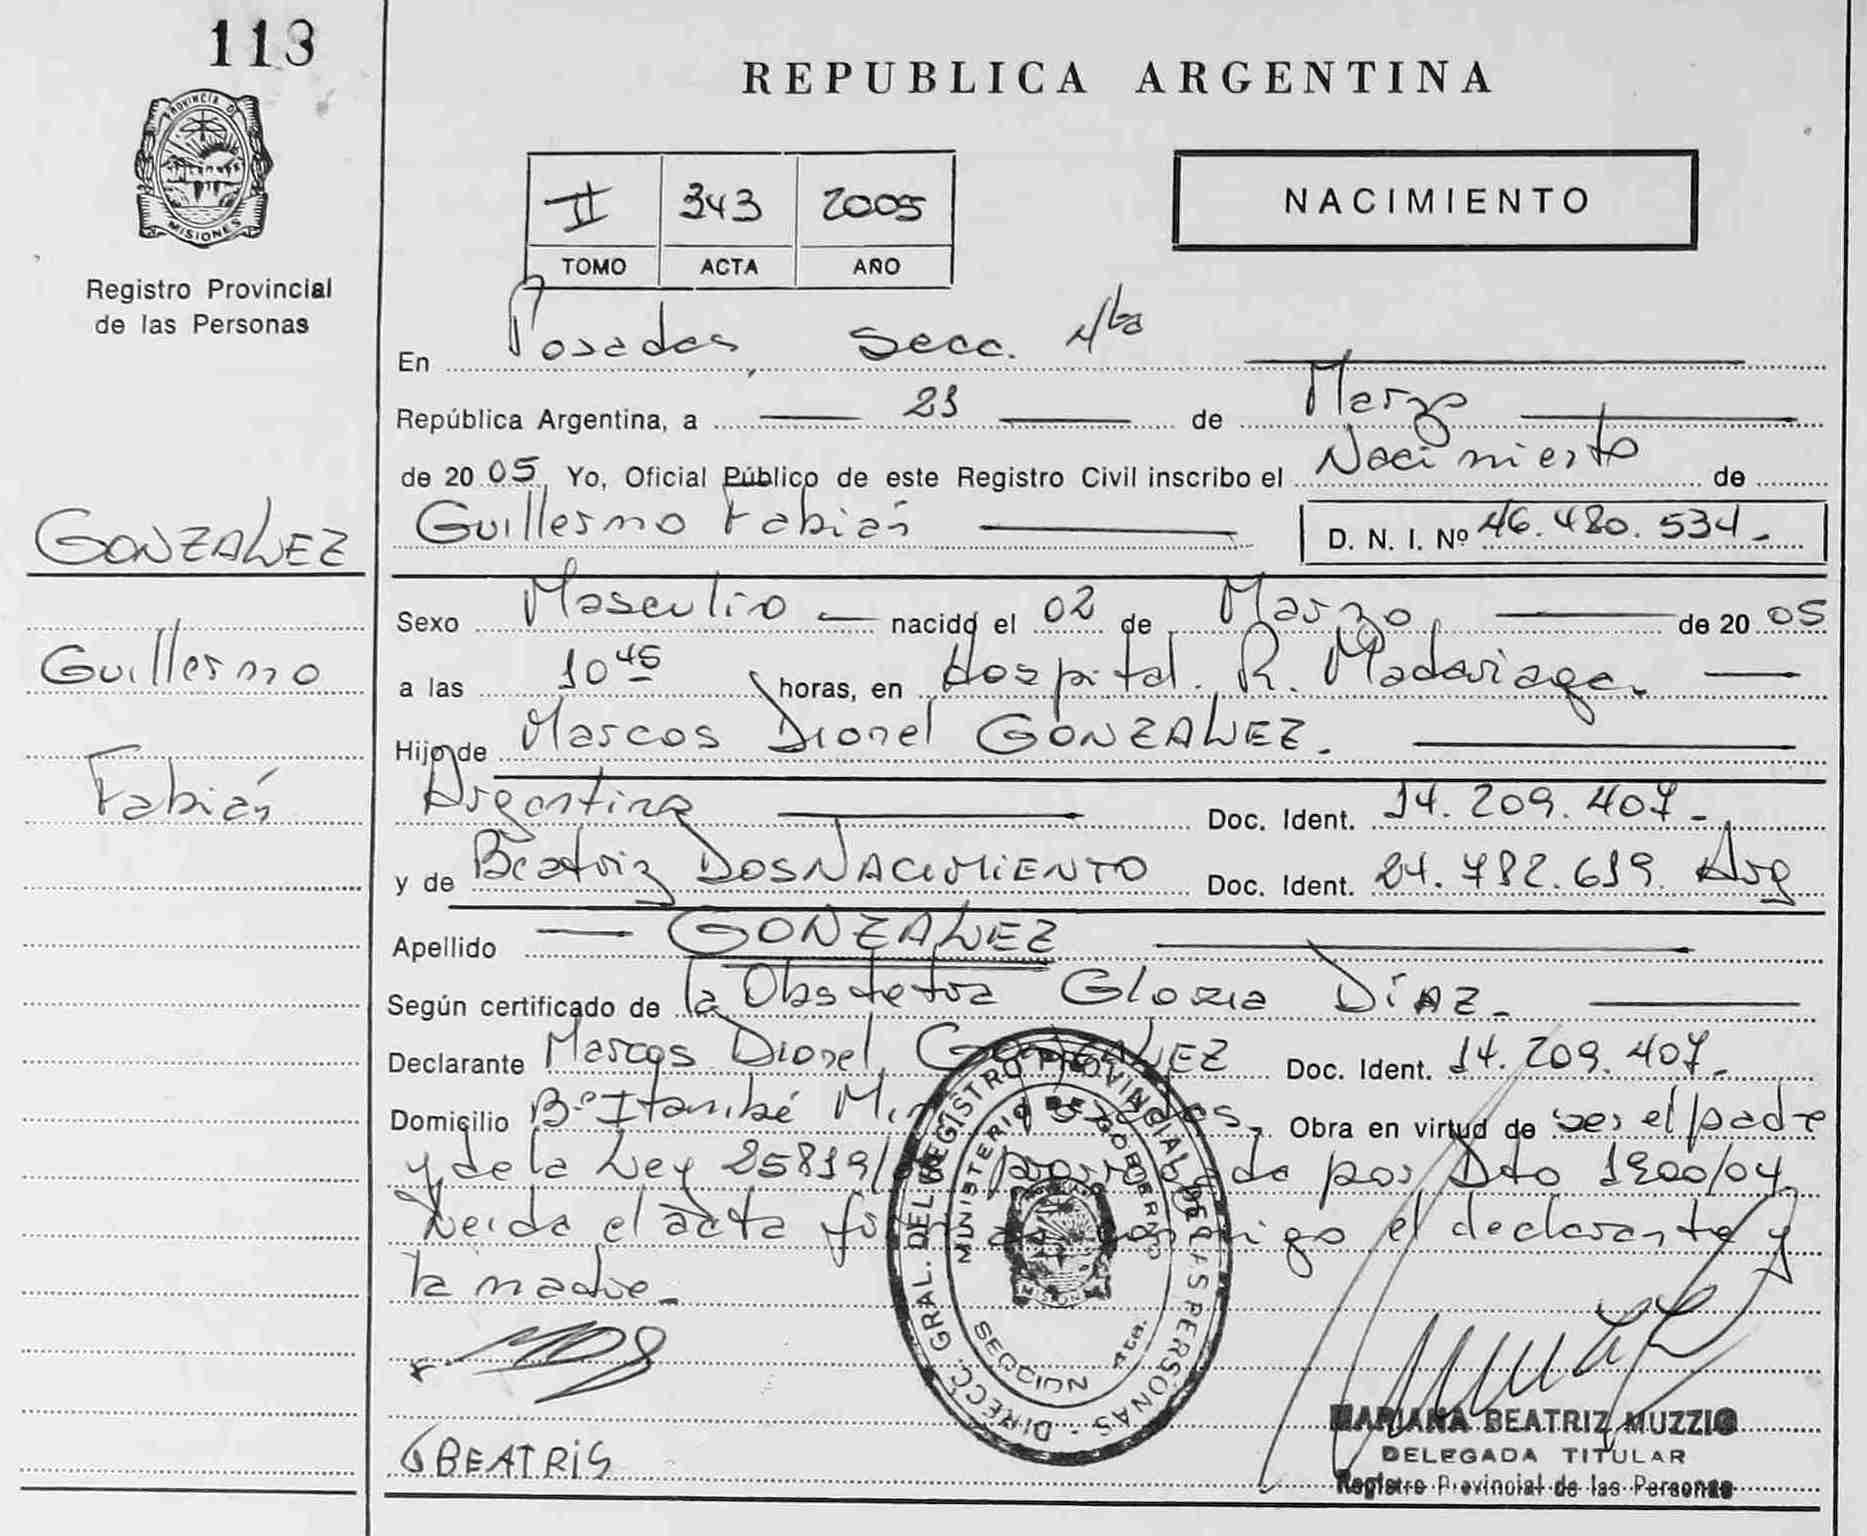 113
PROVINCIA D
MISIONES
Registro Provincial
de las Personas
GONZALEZ
Guillermo
Fabián
REPUBLICA ARGENTINA
NACIMIENTO
II 343 2005
TOMO ACTA AÑO
En Posadas, Secc. 4ta
República Argentina, a 23 de Marzo
de 2005 Yo, Oficial Público de este Registro Civil inscribo el Nacimiento de
Guillermo Fabián D. N. I. Nº 46.480.534.-
Sexo Masculino nacido el 02 de Marzo de 2005
a las 10 45 horas, en Hospital. R. Madariaga.
Hijo de Marcos Dionel GONZALEZ.
Argentina Doc. Ident. 14.209.407.-
y de Beatriz DOSNACIMIENTO Doc. Ident. 24.782.619. Arg
Apellido GONZALEZ
Según certificado de la Obstetra Gloria DíAZ.-
Declarante Marcos Dionel GONZALEZ Doc. Ident. 14.209.407.-
Domicilio Bº Itambé Miní Posadas. Obra en virtud de ser el padre
y de la Ley 25819/ prorrogada por Dto 1900/04.
Leída el acta firman conmigo el declarante y
la madre.-
BEATRIS
DIRECC. GRAL. DEL REGISTRO PROVINCIAL DE LAS PERSONAS
MINISTERIO DE GOBIERNO
MISIONES
SECCION 4ta.
MARIANA BEATRIZ MUZZIO
DELEGADA TITULAR
Registro Provincial de las Personas